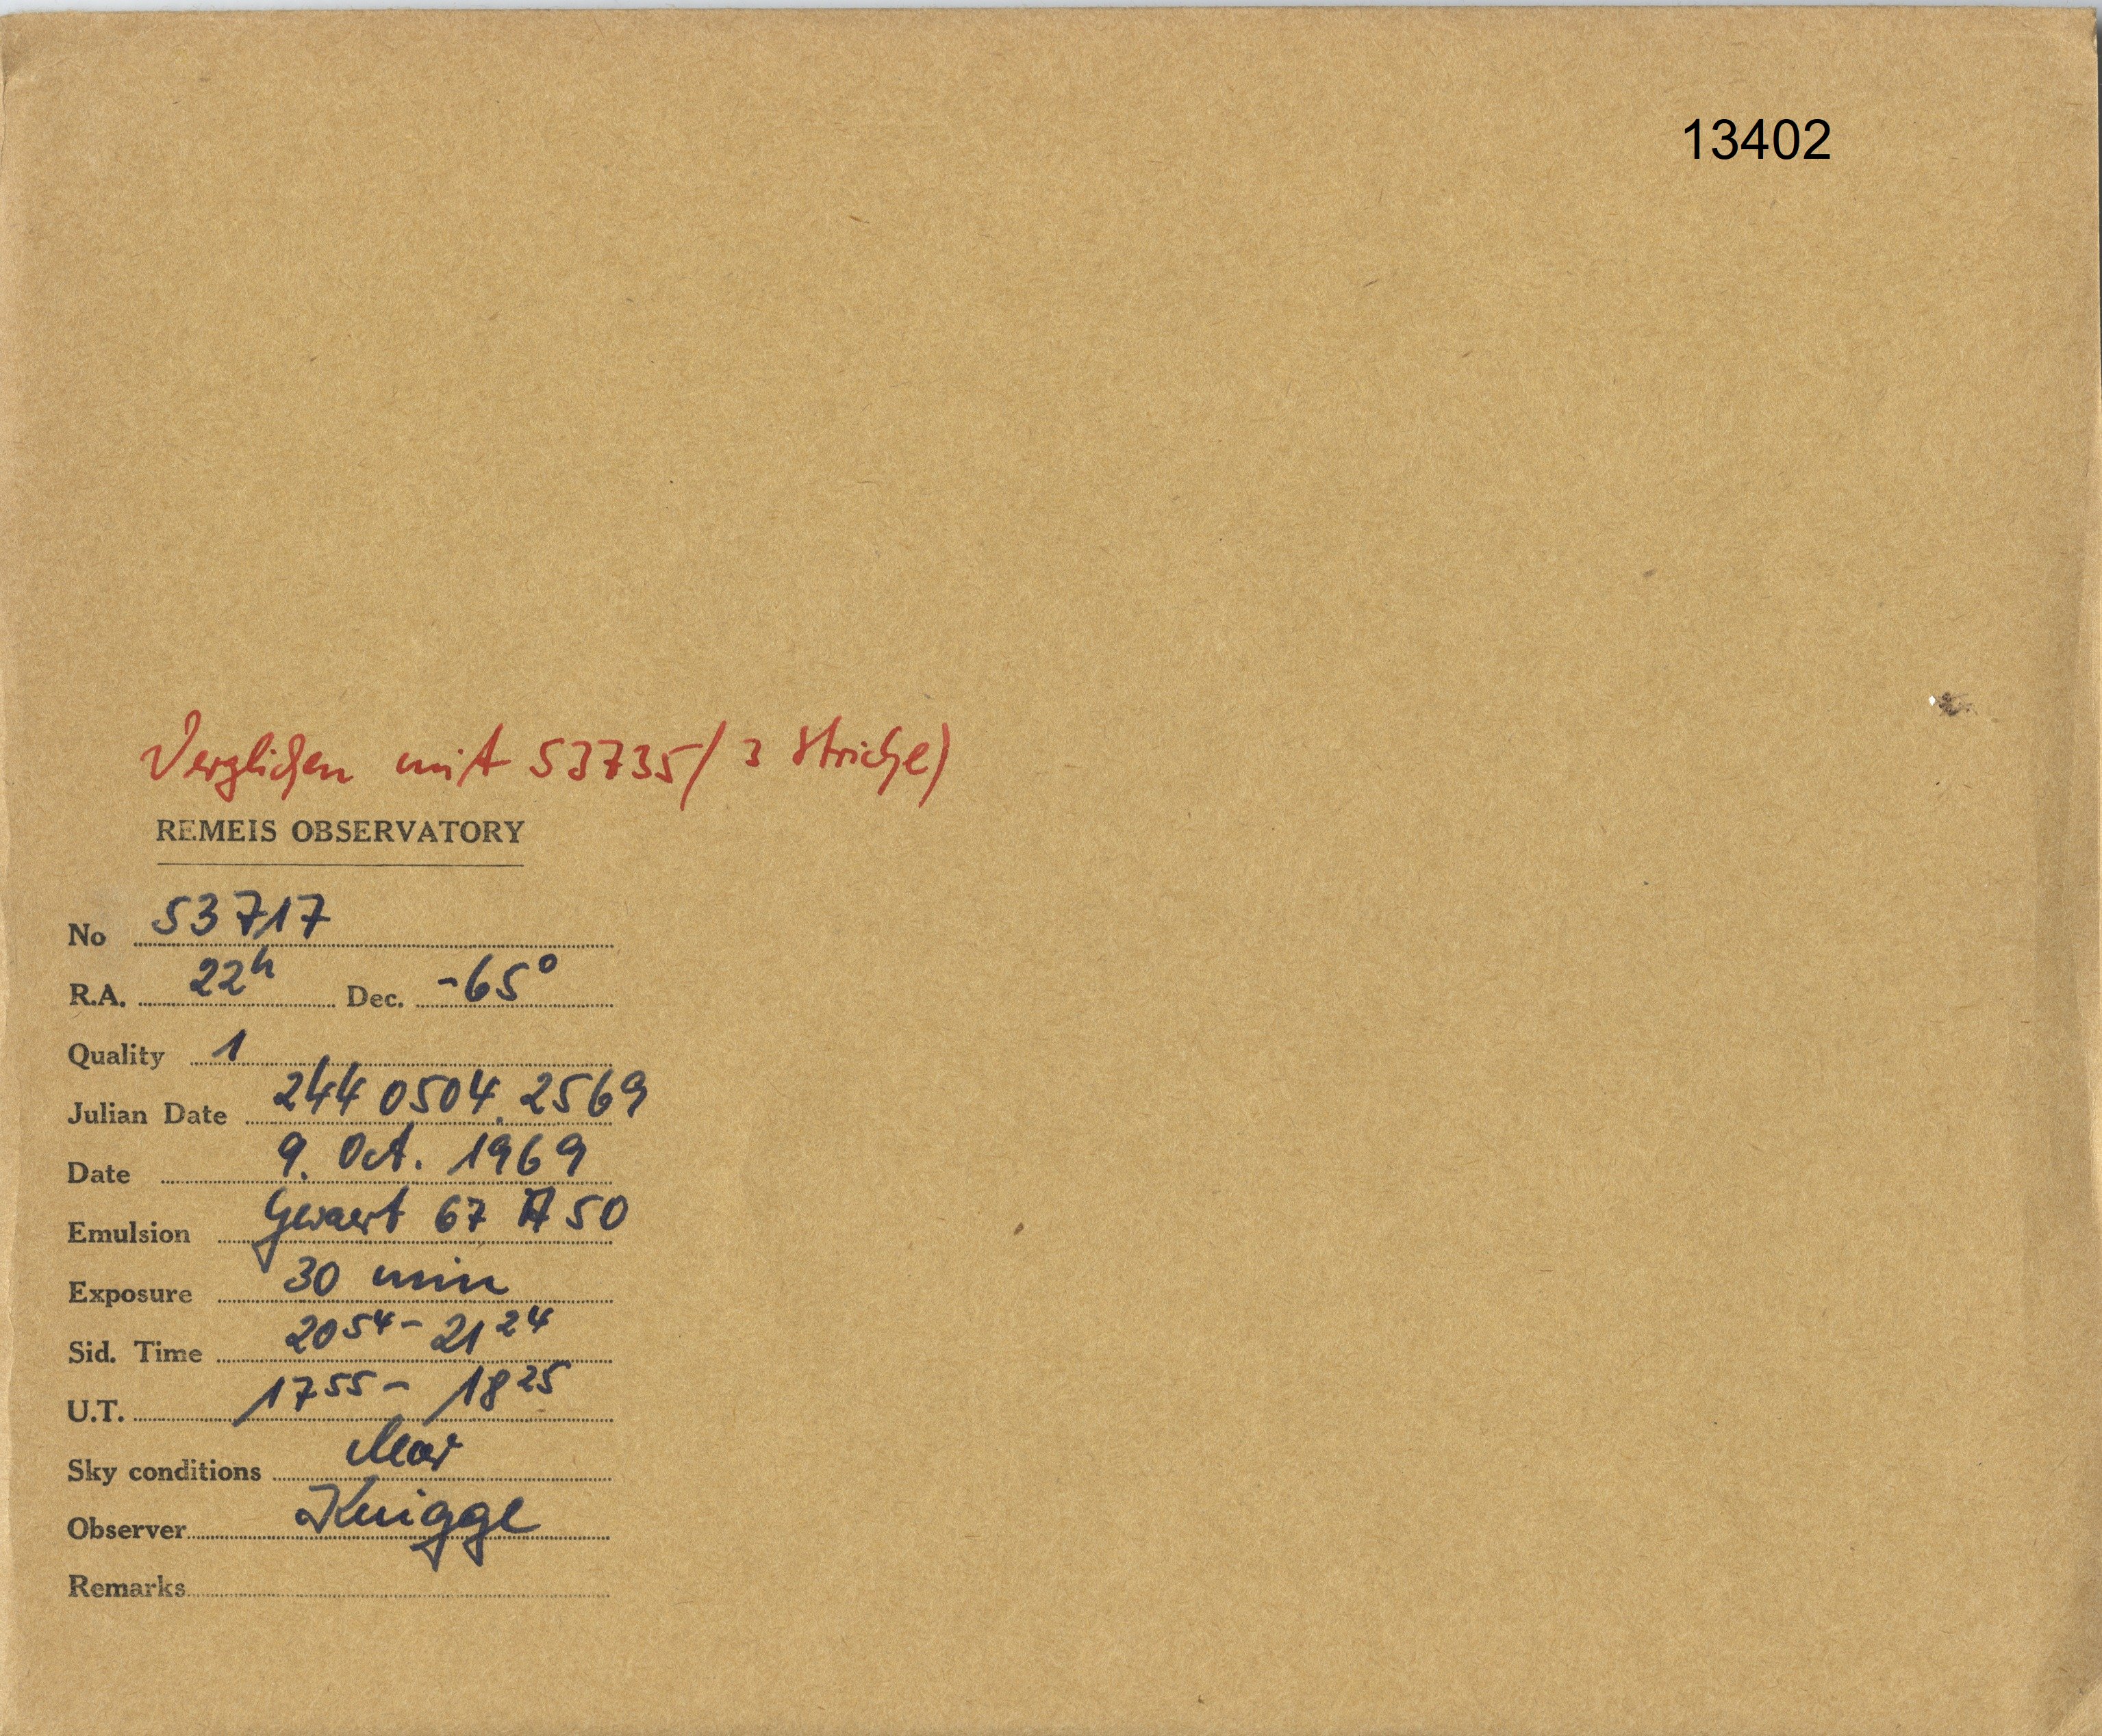 13402
Verglichen mit 53735 (3 Striche)
REMEIS OBSERVATORY
No 53717
R.A. 22h Dec. -65°
Quality 1
Julian Date 244 0504.2569
Date 9. Oct. 1969
Emulsion Gevaert 67 A 50
Exposure 30 min
Sid. Time 20 54 - 21 24
U.T. 17 55 - 18 25
Sky conditions clear
Observer Knigge
Remarks